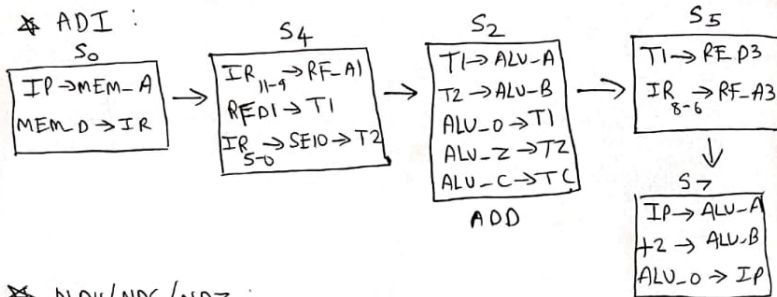 * ADI :
S0
IP→MEM_A
MEM_D→IR
S4
IR11-9→RF_A1
RFD1→T1
IR5-0→SE10→T2
S2
T1→ALU_A
T2→ALU_B
ALU_O→T1
ALU_Z→TZ
ALU_C→TC
ADD
S5
T1→RF_D3
IR8-6→RF_A3
S7
IP→ALU_A
+2→ALU_B
ALU_O→IP